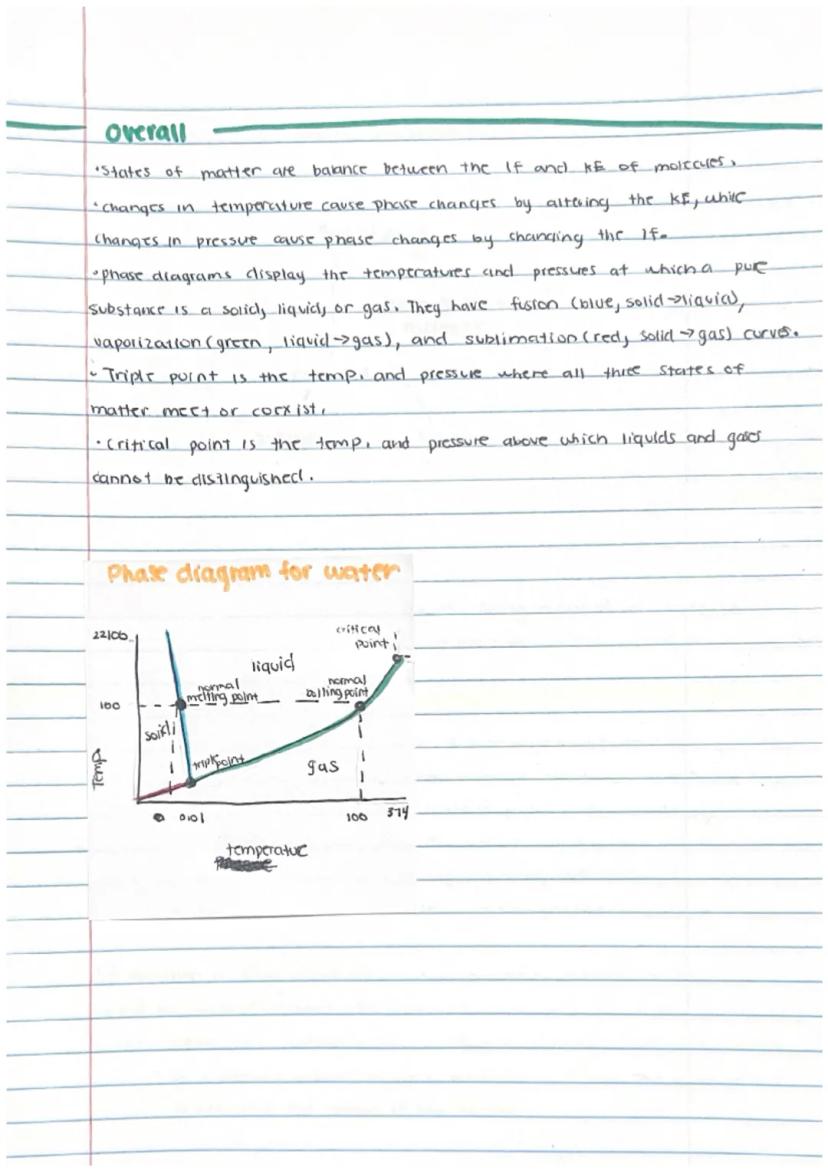 Overall
•States of matter are balance between the If and KE of molecules.
•changes in temperature cause phase changes by altering the KE, while
changes in pressue cause phase changes by changing the If.
•phase diagrams display the temperatures and pressues at which a pure
substance is a solid, liquid, or gas. They have fusion (blue, solid→liquid),
vaporization (green, liquid→gas), and sublimation (red, solid→gas) curves.
• Triple point is the temp. and pressure where all three states of
matter meet or coexist.
• Critical point is the temp. and pressure above which liquids and gases
cannot be distinguished.
Phase diagram for water
22106
critical
point
liquid
normal
melting point
normal
boiling point
100
solid
triple point
gas
Temp
0 0.01 100 374
temperature